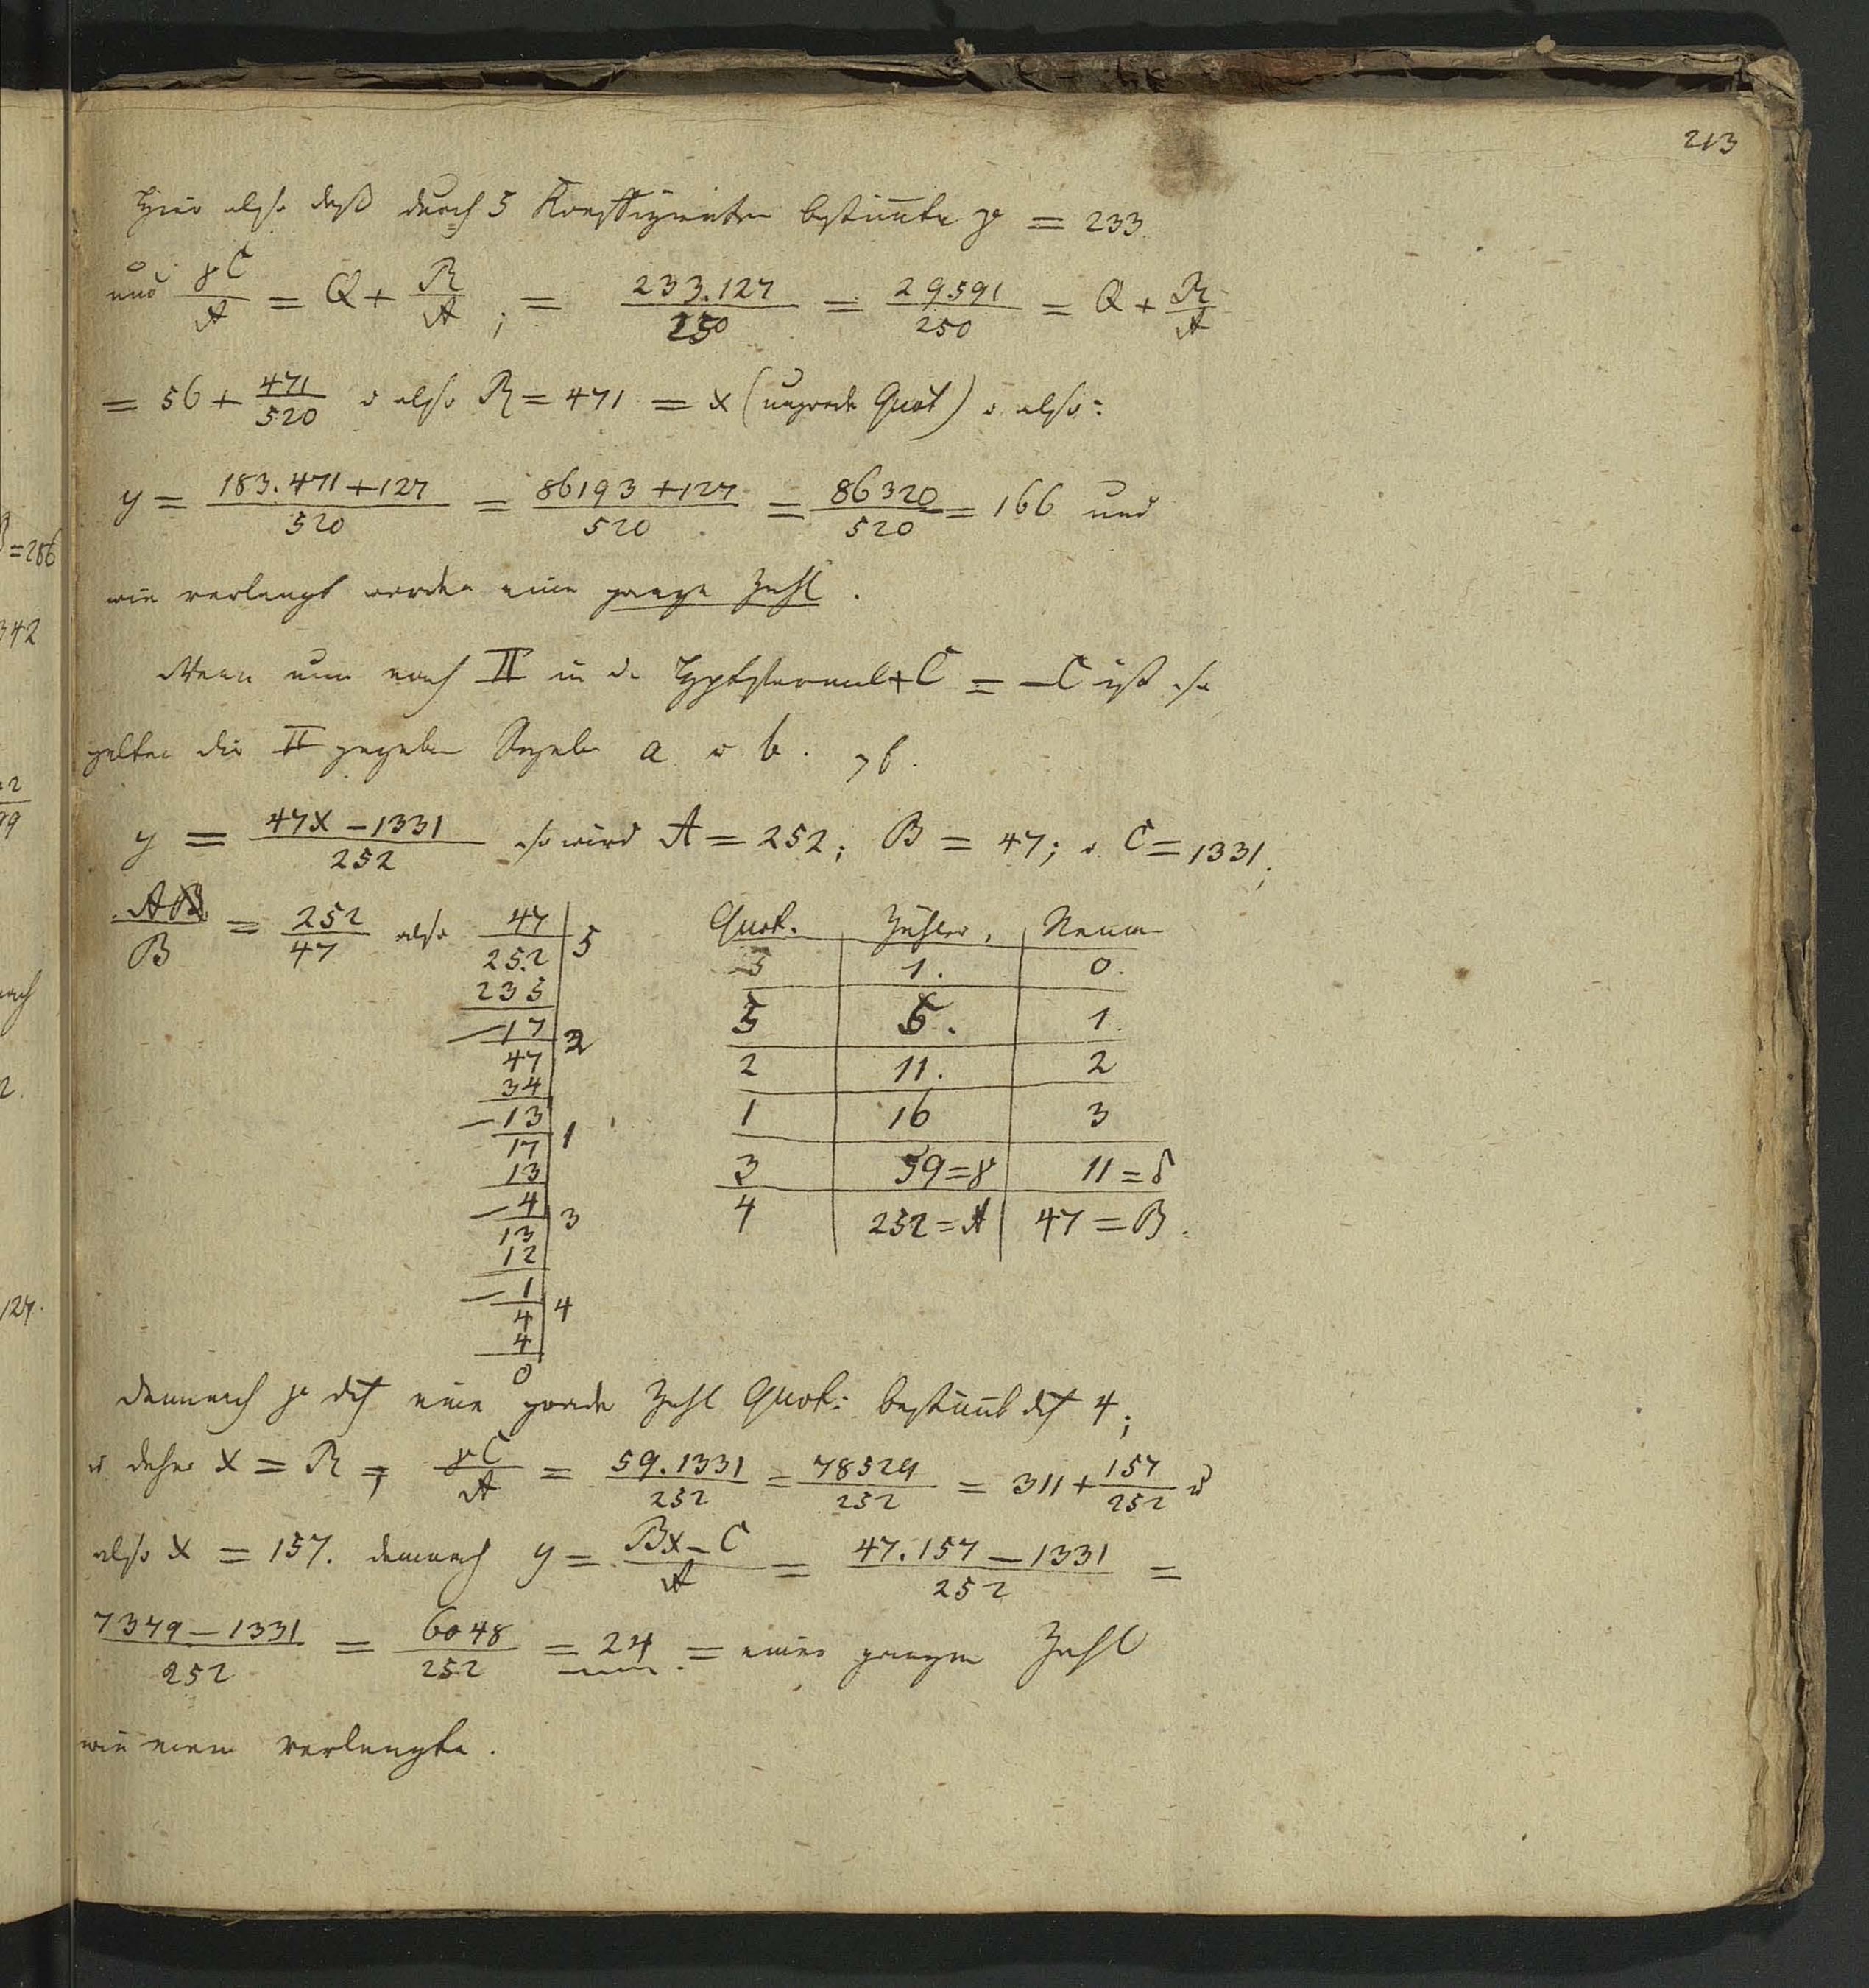 213
Hier also daß durch 5 Koeffizienten bestimmte γ = 233
und γC/A = Q + R/A ; = 233.127/250 = 29591/250 = Q + R/A
= 56 + 471/520 u also R = 471 = x (ungerade Quot) u. also:
y = 183.471+127/520 = 86193+127/520 = 86320/520 = 166 und
wie verlangt worden eine ganze Zahl.
Wenn nun nach II in d. +C = -C ist so
gelten die II gegeben Regeln a u b. z b.
y = 47x-1331/252 so wird A = 252; B = 47; u. C = 1331;
A/B = 252/47 also
47
252 | 5
235
-17 | 2
47
34
-13 | 1
17
13
-4 | 3
13
12
-1 | 4
4
4
0
Quot. Zähler, Nenn
1. 0.
5 5. 1.
2 11. 2
1 16 3
3 59=γ 11=δ
4 252=A 47=B.
demnach γ eine gerade Zahl Quot: bestimmt 4;
u daher x = R = γC/A = 59.1331/252 = 78529/252 = 311 + 157/252 u
also x = 157. demnach y = Bx-C/A = 47.157-1331/252 =
7379-1331/252 = 6048/252 = 24. = einer ganzen Zahl
wie man verlangte.
=286
342
2
99
2.
127.